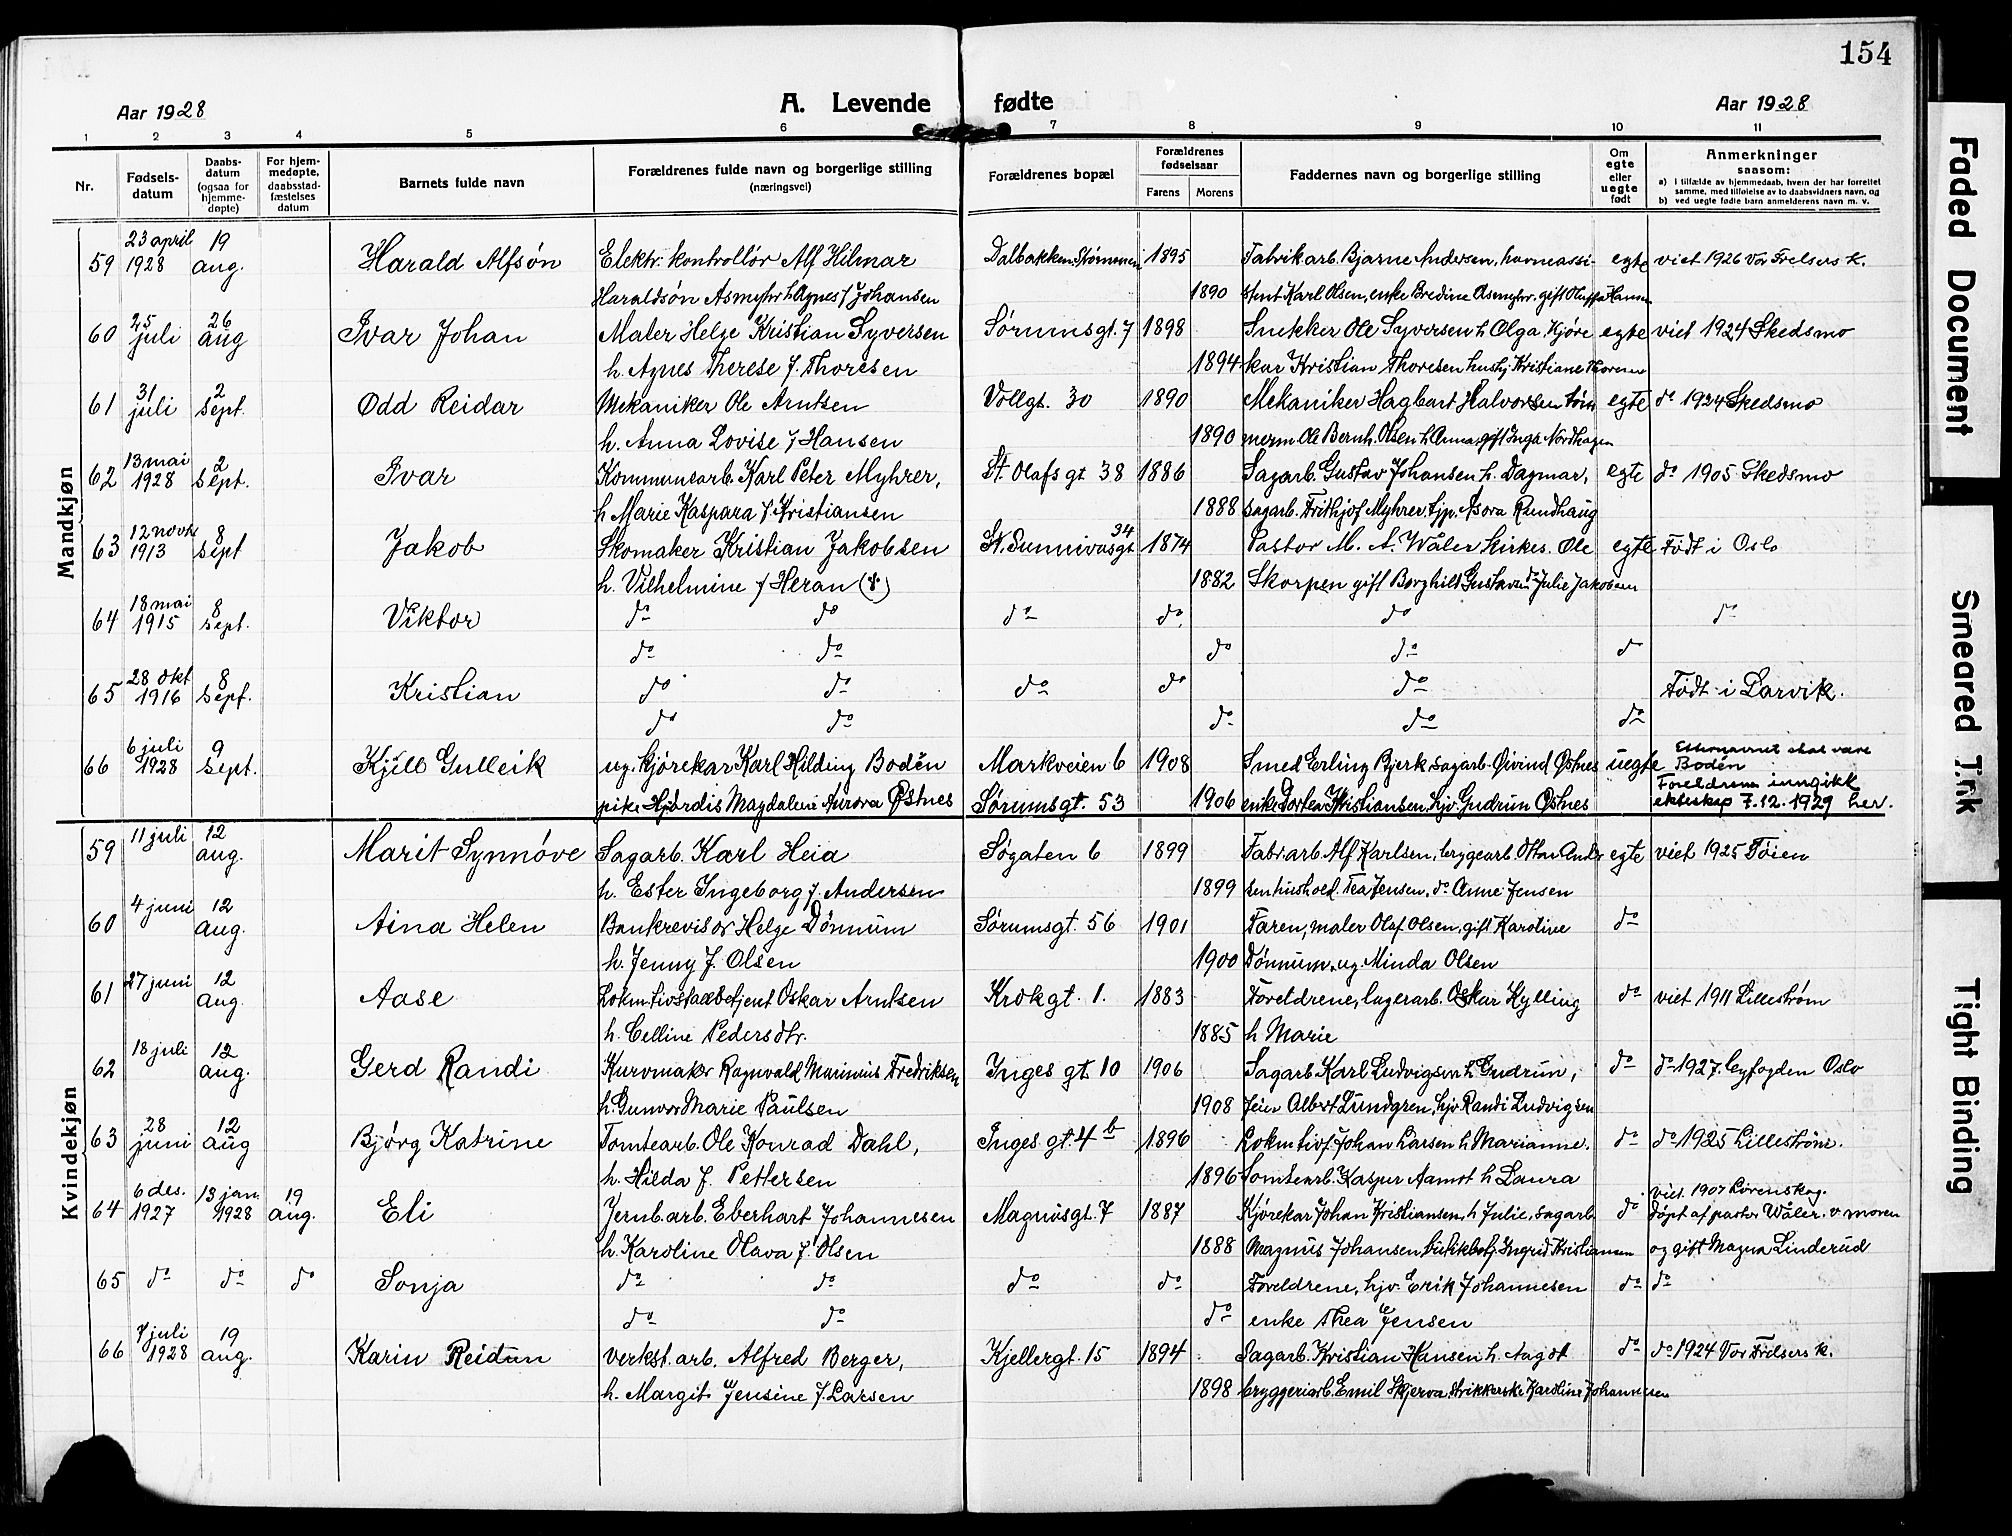 154
Aar 1928
A. Levende fødte
Aar 1928
1 2 3 4 5 6 7 8 9 10 11
Nr.
Fødsels-
datum
Daabs-
datum
(ogsaa for
hjemme-
døpte)
For hjem-
medøpte,
daabsstad-
fæstelses
datum
Barnets fulde navn
Forældrenes fulde navn og borgerlige stilling
(næringsvei)
Forældrenes bopæl
Forældrenes
fødselsaar
Farens Morens
Faddernes navn og borgerlige stilling
Om
egte
eller
uegte
født
Anmerkninger
saasom:
a) i tilfælde av hjemmedaab, hvem der har forrettet
samme, med tilføielse av to daabsvidners navn, og
b) ved uegte fødte barn anmelderens navn m. v.
Mandkjøn
23 april 19
59 1928 aug. Harald Alfsøn Elektr. kontrollør Alf Hilmar Dalbakken, Strømmen 1895 Fabrikarb. Bjarne Andersen, havneassi- egte viet 1926 Vor Frelsers k.
Haraldsøn Asmyhr h. Agnes f. Johansen 1890 stent Karl Olsen, enke Bredine Asmyhr, gift Oluffa Hansen
25 26
60 juli aug Ivar Johan Maler Helge Kristian Syversen Sørumsgt. 7 1898 Snekker Ole Syversen h. Olga, Kjøre egte viet 1924 Skedsmo
h. Agnes Therese f. Thoresen 1894 kar Kristian Thoresen hushj. Kristiane Thoresen
31 2
61 juli sept. Odd Reidar Mekaniker Ole Arntsen Vollgt. 30 1890 Mekaniker Hagbart Halvorsen tøm egte do 1924 Skedsmo
h. Anna Lovise f Hansen 1890 merm. Ole Bernh. Olsen h. Anna, gift Inga Nordhagen
13 mai 2
62 1928 sept. Ivar Kommunearb. Karl Peter Myhrer, St. Olafs gt 38 1886 Sagarb. Gustav Johansen h. Dagmar, egte do 1905 Skedsmo
h Marie Kaspara f. Kristiansen 1888 sagarb. Frithjof Myhrer, tjp. Asora Rundhaug
12 novbr 8 34
63 1913 sept Jakob Skomaker Kristian Jakobsen St. Sunnivasgt 1874 Pastor M. A. Wåler kirkes. Ole egte Født i Oslo
h. Vilhelmine f Heran (†) 1882 Skorpen gift Borghild Gustavsen do Julie Jakobsen
18 mai 8
64 1915 sept. Viktor do do do do do do
do do do do do
28 okt 8
65 1916 sept. Kristian do do do do do Født i Larvik.
do do do do do
6 juli 9 Etternavnet skal være
66 1928 sept. Kjell Gulleik ug. kjørekar Karl Hilding Bodén Markveien 6 1908 Smed Erling Bjerk, sagarb. Øivind Østnes uegte Bodén
Foreldrene inngikk
pike Hjørdis Magdalene Aurora Østnes Sørumsgt. 53 1906 enke Dorthea Kristiansen, hjv. Gudrun Østnes ekteskap 7.12.1929 her.
Kvindekjøn
11 juli 12
59 aug. Marit Synnøve Sagarb. Karl Heia Søgaten 6 1899 Fabr.arb. Alf Karlsen, brygearb. Ottar Ander egte viet 1925 Tøien
h. Ester Ingeborg f. Andersen 1899 sen hushold. Tea Jensen, do Anne Jensen
4 juni 12
60 aug. Aina Helen Bankrevisor Helge Dønnum Sørumsgt. 56 1901 Faren, maler Olaf Olsen, gift Karoline do
h. Jenny f. Olsen 1900 Dønnum, ug. Minda Olsen
27 juni 12
61 aug. Aase Lokmtivstaldbetjent Oskar Arntsen Krokgt. 1. 1883 Foreldrene, lagerarb. Oskar Kylling do viet 1911 Lillestrøm
h. Celline Pedersdtr. 1885 h Marie
18 juli 12
62 aug. Gerd Randi Kurvmaker Ragnvald Marinius Fredriksen Inges gt 10 1906 Sagarb. Karl Ludvigsen h. Gudrun, do do 1927. byfogden Oslo
h. Gunvor Marie Paulsen 1908 feier Albert Lundgren, hjv Randi Ludvigsen
28 12
63 juni aug Bjørg Katrine Tomtearb. Ole Konrad Dahl, Inges gt. 4 b 1896 Lokmtivf. Johan Larsen h Marianne. do do 1925 Lillestrøm.
h. Hilda f. Pettersen 1896 Tomtearb. Kaspar Aamot h Laura
6 des. 13 jan. 19 viet. 1907 Lørenskog.
64 1927 1928 aug. Eli Jernb.arb. Eberhart Johannesen Magnusgt. 7 1887 Kjørekar Johan Kristiansen, h Julie, sagarb do døpt af pastor Wåler. v moren
h. Karoline Olava f. Olsen 1888 Magnus Johansen, butikbetj. Ingrid Kristiansen og gift Magna Linderud
65 do do do Sonja do do do do Foreldrene, hjv. Erik Johannesen do do
do do do enke Thea Jensen
7 juli 19
66 1928 aug. Karin Reidun Verkst.arb. Alfred Berger, Kjellergt. 15 1894 Sagarb. Kristian Hansen h. Aagot do do 1924 Vor Frelsers k.
h. Margit Jensine f. Larsen 1898 bryggeriarb. Emil Skjerva, strikkerske Karoline Johannesen
Faded Document
Smeared Ink
Tight Binding